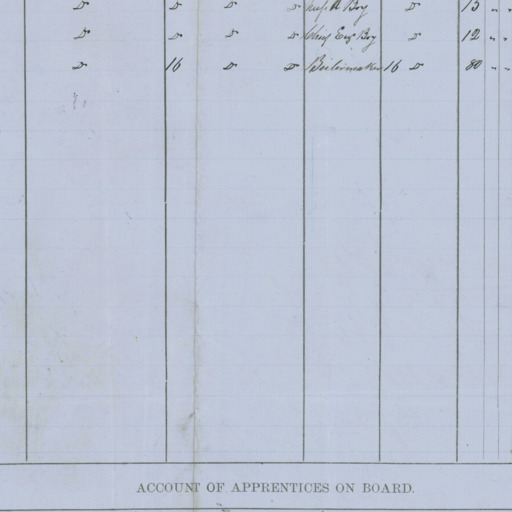 Do Do Do Do Boy Do 15 " "
Do Do Do Do Chief Eng Boy Do 12 " "
Do 16 Do Do Boilermaker 16 Do 80 " "
ACCOUNT OF APPRENTICES ON BOARD.